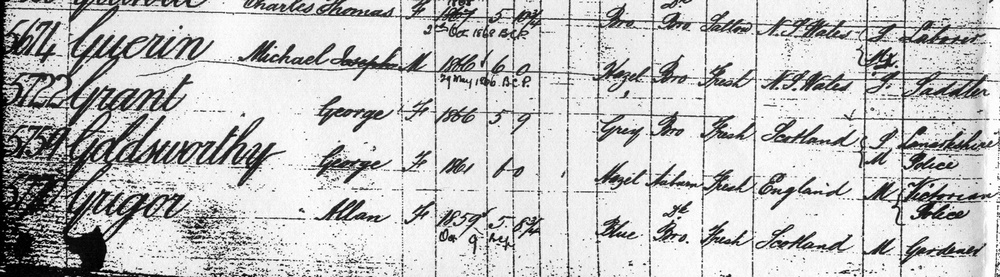 Charles Thomas F 1867 5 10¾ Bro Bro Sallow N.S.Wales S Laborer
2nd Oct 1868 B.C.P.
5674 Guerin Michael Joseph M 1866 6 0 Hazel Bro Fresh N.S.Wales S. Saddler
29 May 1866 B.C.P.
5722 Grant George F 1866 5 9 Grey Bro Fresh Scotland S Lanarkshire
M Police
5759 Goldsworthy George F 1861 6 0 Hazel Auburn Fresh England M Victorian
Police
Grigor Allan F 1859 5 8¾ Blue Dk Bro. Fresh Scotland M Gardener
Oct 9